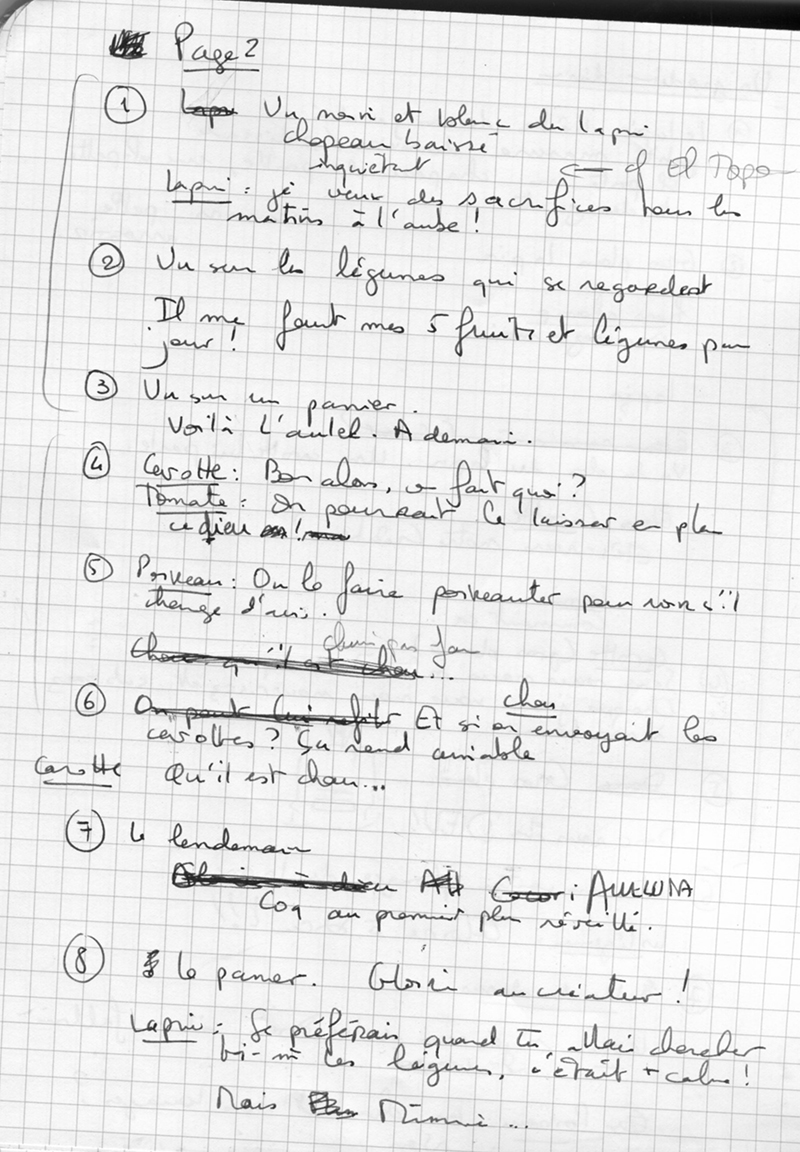 Page 2
① Vu noir et blanc du lapin
chapeau baissé
inquiétant
← cf El Topo
Lapin : je veux des sacrifices tous les
matins à l'aube !
② Vu sur les légumes qui se regardent
Il me faut mes 5 fruits et légumes par
jour !
③ Vu sur un panier.
Voilà l'autel. A demain.
④ Carotte : Bon alors, on fait quoi ?
Tomate : On pourrait le laisser en plan
ce dieu !
⑤ Poireau : On le faire poireauter pour voir s'il
change d'avis.
Chou qu'il est chou...
⑥ On peut lui
chou
Et si on envoyait les
carottes ? Ça rend aimable
Carotte Qu'il est chou...
⑦ Le lendemain
Gloire à dieu All Cocori ALLELUIA
Coq au premier plan réveillé.
⑧ le panier. Gloire au créateur !
Lapin : Je préférais quand tu allais chercher
toi-m les légumes, c'était + calme !
Mais Mimi...